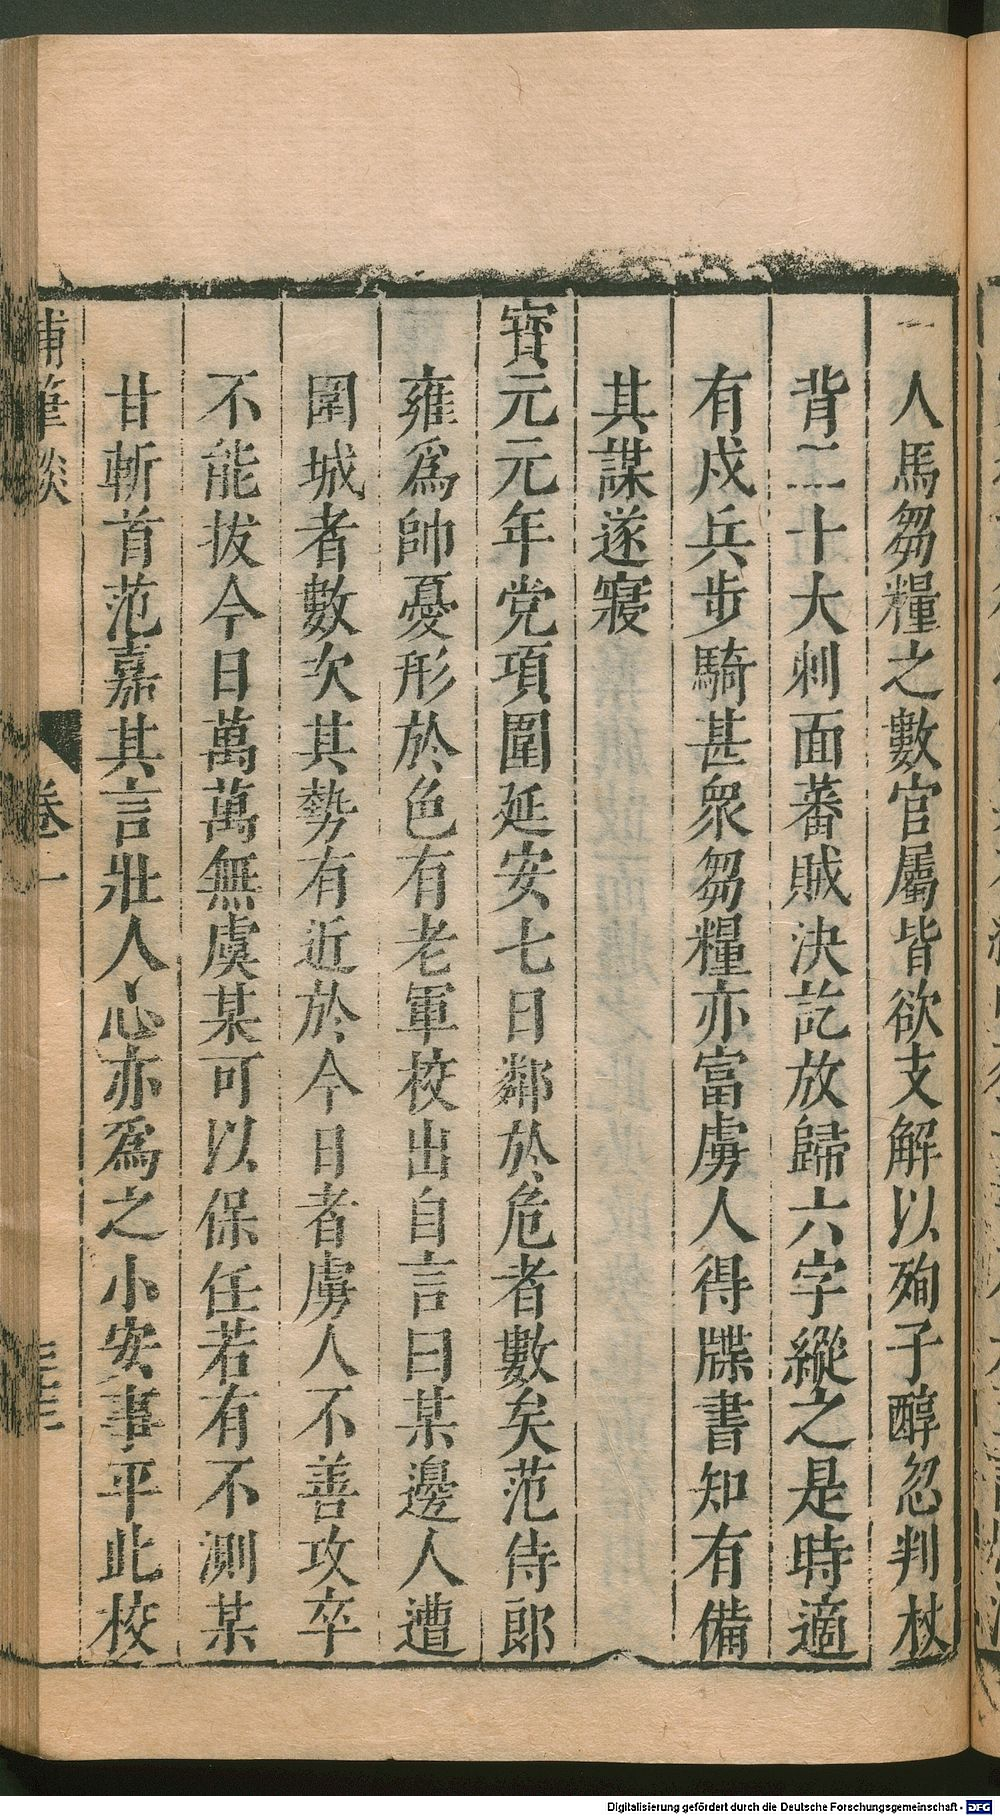 人馬芻糧之數官屬皆欲支解以殉子醇忽判杖
背二十大刺面蕃賊決訖放歸六字縱之是時適
有戍兵步騎甚衆芻糧亦富虜人得牒書知有備
其謀遂寢
寳元元年党項圍延安七日鄰於危者數矣范侍郎
雍爲帥憂形於色有老軍校出自言曰某邊人遭
圍城者數次其勢有近於今日者虜人不善攻卒
不能拔今日萬萬無虞某可以保任若有不測某
甘斬首范嘉其言壯人心亦爲之小安事平此校
補筆談
卷一
Digitalisierung gefördert durch die Deutsche Forschungsgemeinschaft - DFG